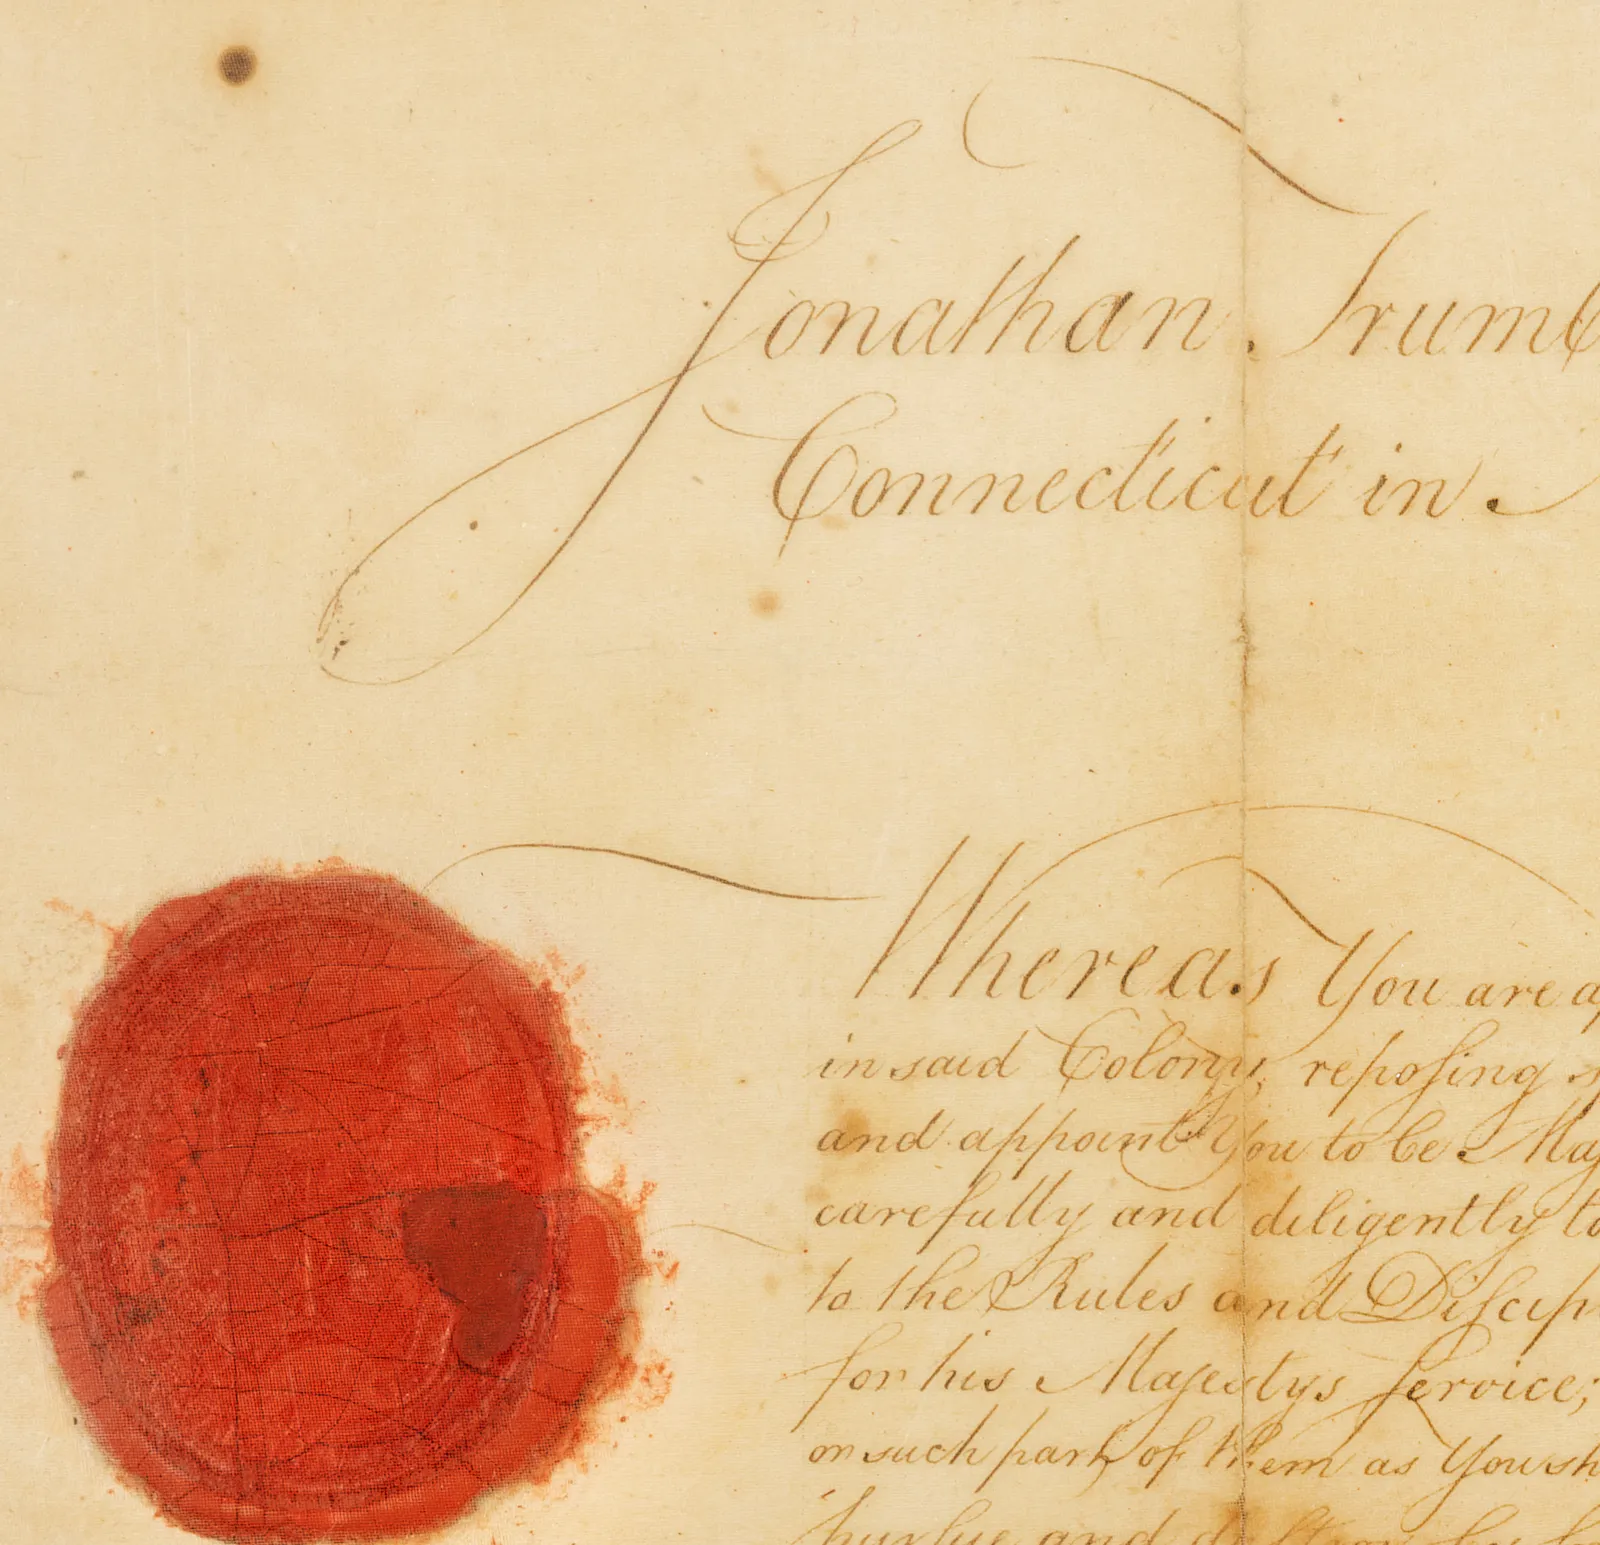 Jonathan Trumb
Connecticut in
Whereas You are ap
in said Colony, reposing s
and appoint You to be Maj
carefully and diligently to
to the Rules and Discip
for his Majestys Service;
or such part of them as You sh
pursue and destroy by